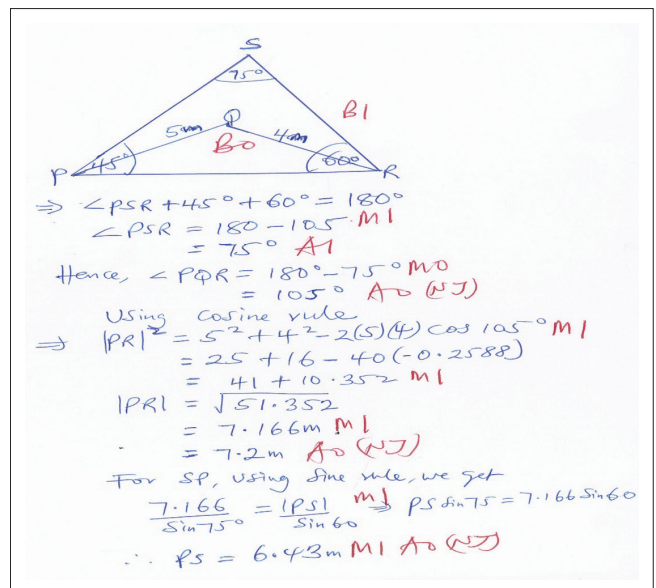 S
75°
Q
B1
5m
4m
B0
45°
60°
P
R
⇒ ∠PSR + 45° + 60° = 180°
∠PSR = 180 - 105 M1
= 75° A1
Hence, ∠PQR = 180° - 75° M0
= 105° A0 (NJ)
Using cosine rule
⇒ |PR|² = 5² + 4² - 2(5)(4) cos 105° M1
= 25 + 16 - 40(-0.2588)
= 41 + 10.352 M1
|PR| = √51.352
= 7.166m M1
= 7.2m A0 (NJ)
For SP, using sine rule, we get
7.166/Sin75° = |PS|/Sin60 M1 ⇒ PS sin75 = 7.166 Sin60
∴ PS = 6.43m M1 A0 (NJ)